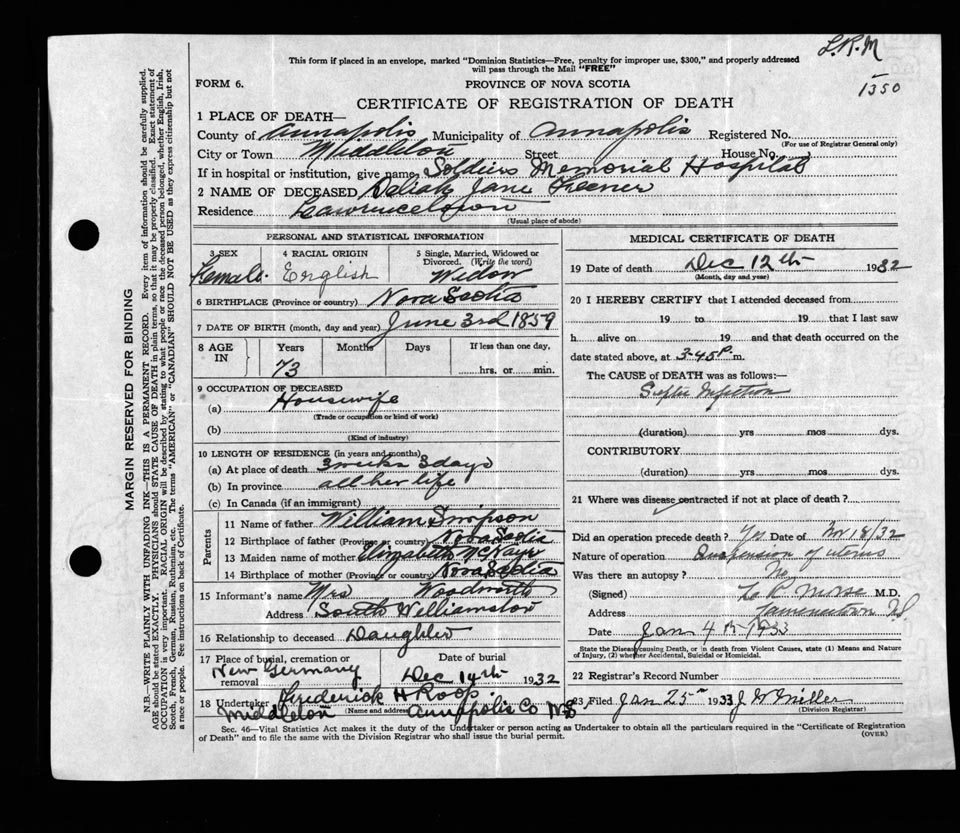 L.R.M
1350
This form if placed in an envelope, marked "Dominion Statistics—Free, penalty for improper use, $300," and properly addressed
will pass through the Mail "FREE"
FORM 6.
PROVINCE OF NOVA SCOTIA
CERTIFICATE OF REGISTRATION OF DEATH
1 PLACE OF DEATH—
County of Annapolis Municipality of Annapolis Registered No.
(For use of Registrar General only)
City or Town Middleton Street House No. )
If in hospital or institution, give name Soldiers Memorial Hospital
2 NAME OF DECEASED Jane
Residence Lawrencetown
(Usual place of abode)
PERSONAL AND STATISTICAL INFORMATION
3 SEX Female.
4 RACIAL ORIGIN English
5 Single, Married, Widowed or
Divorced. (Write the word)
Widow
6 BIRTHPLACE (Province or country) Nova Scotia
7 DATE OF BIRTH (month, day and year) June 3rd 1859
8 AGE IN
Years Months Days If less than one day,
73 hrs. or min.
9 OCCUPATION OF DECEASED
(a) Housewife
(Trade or occupation or kind of work)
(b)
(Kind of industry)
10 LENGTH OF RESIDENCE (in years and months)
(a) At place of death 3 weeks 3 days
(b) In province all her life
(c) In Canada (if an immigrant)
Parents
11 Name of father William Simpson
12 Birthplace of father (Province or country) Nova Scotia
13 Maiden name of mother Elizabeth
14 Birthplace of mother (Province or country) Nova Scotia
15 Informant's name Mrs Woodworth
Address South Williamston
16 Relationship to deceased Daughter
17 Place of burial, cremation or removal New Germany
Date of burial
Dec 14th 1932
18 Undertaker Frederick H Roop
(Name and address)
Middleton Annapolis Co NS.
MEDICAL CERTIFICATE OF DEATH
19 Date of death Dec 12th 1932
(Month, day and year)
20 I HEREBY CERTIFY that I attended deceased from
19 to 19 that I last saw
h alive on 19 and that death occurred on the
date stated above, at 3-45 P. m.
The CAUSE of DEATH was as follows:—
Septic Infection
(duration) yrs mos dys.
CONTRIBUTORY
(duration) yrs mos dys.
21 Where was disease contracted if not at place of death?
Did an operation precede death? Yes. Date of Nov 18/32
Nature of operation Suspension of uterus
Was there an autopsy? No
(Signed) L R Morse M.D.
Address Lawrencetown NS.
Date Jan 4th 1933
State the Disease causing Death, or in death from Violent Causes, state (1) Means and
Nature of Injury, (2) whether Accidental, Suicidal or Homicidal.
22 Registrar's Record Number
23 Filed Jan 25th 1933 J W Miller
(Division Registrar)
Sec. 46—Vital Statistics Act makes it the duty of the Undertaker or person acting as Undertaker to obtain all the particulars required in the "Certificate of Registration
of Death" and to file the same with the Division Registrar who shall issue the burial permit.
(OVER)
MARGIN RESERVED FOR BINDING
N.B.—WRITE PLAINLY WITH UNFADING INK—THIS IS A PERMANENT RECORD. Every item of information should be carefully supplied.
AGE should be stated EXACTLY. PHYSICIANS should STATE CAUSE OF DEATH in plain terms, so that it may be properly classified. Exact statement of
OCCUPATION is very important. RACIAL ORIGIN will be described by stating to what people or race the deceased person belonged, whether English, Irish,
Scotch, French, German, Russian, Ruthenian, etc. The terms "AMERICAN" or "CANADIAN" SHOULD NOT BE USED as they express citizenship but not
a race or people. See instructions on back of Certificate.